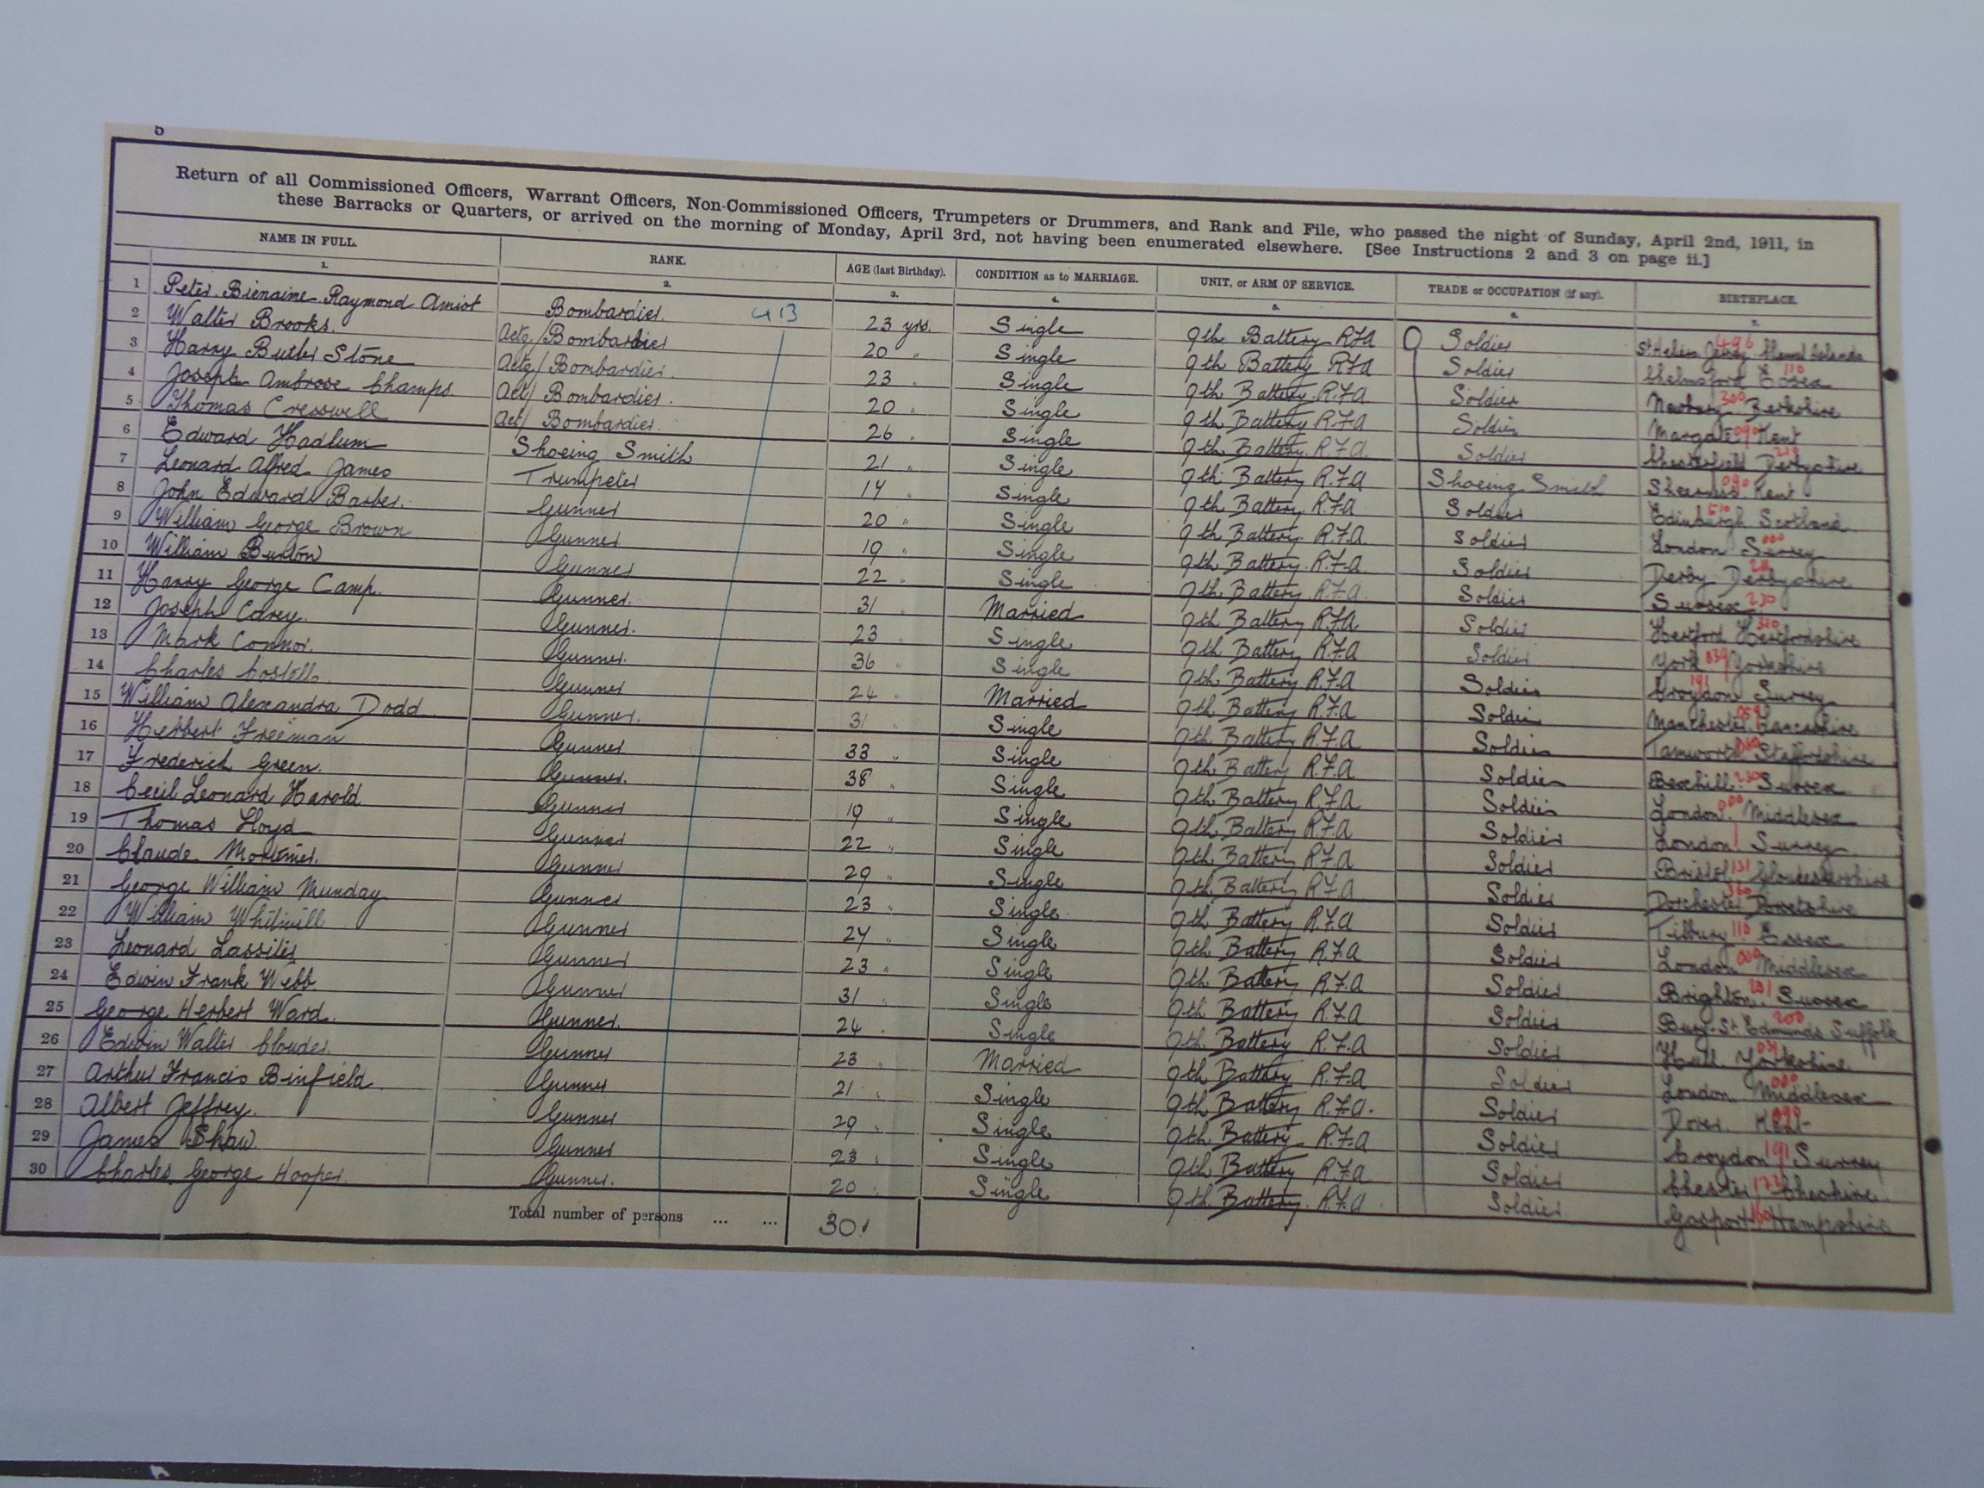 6
Return of all Commissioned Officers, Warrant Officers, Non-Commissioned Officers, Trumpeters or Drummers, and Rank and File, who passed the night of Sunday, April 2nd, 1911, in
these Barracks or Quarters, or arrived on the morning of Monday, April 3rd, not having been enumerated elsewhere. [See Instructions 2 and 3 on page ii.]
NAME IN FULL. RANK. AGE (last Birthday). CONDITION as to MARRIAGE. UNIT, or ARM OF SERVICE. TRADE or OCCUPATION (if any). BIRTHPLACE.
1. 2. 3. 4. 5. 6. 7.
1 Peter Bienaime Raymond Amiot Bombardier. 413 23 yrs. Single 9th Battery RFA Soldier St Helier Jersey Channel Islands 496
2 Walter Brooks. Actg/Bombardier 20 " Single 9th Battery RFA Soldier Chelmsford Essex 110
3 Harry Butler Stone Actg/Bombardier. 23 Single 9th Battery R.F.A Soldier Newbury Berkshire 300
4 Joseph Ambrose Champs. Act/Bombardier. 20 Single 9th Battery R.F.A Soldier Margate Kent 090
5 Thomas Cresswell Act/Bombardier. 26 Single 9th Battery R.F.A Soldier Chesterfield Derbyshire
6 Edward Hadlum Shoeing Smith 21 Single 9th Battery R.F.A Shoeing Smith Sheerness Kent 090
7 Leonard Alfred James Trumpeter 14 Single 9th Battery R.F.A Soldier Edinburgh Scotland
8 John Edward Barber. Gunner 20 " Single 9th Battery R.F.A Soldier London Surrey 000
9 William George Brown Gunner 19 Single 9th Battery R.F.A Soldier Derby Derbyshire
10 William Burton Gunner 22 Single 9th Battery R.F.A Soldier Sussex 230
11 Harry George Camp. Gunner. 31 Married 9th Battery R.F.A Soldier Hertford Hertfordshire 310
12 Joseph Carey. Gunner. 23 Single 9th Battery R.F.A Soldier York Yorkshire 039
13 Mark Connor. Gunner. 36 Single 9th Battery R.F.A Soldier Croydon Surrey 191
14 Charles Costello Gunner 24 Married 9th Battery R.F.A Soldier Manchester Lancashire
15 William Alexandra Dodd Gunner. 31 Single 9th Battery R.F.A Soldier Tamworth Staffordshire
16 Herbert Freeman Gunner 33 Single 9th Battery R.F.A Soldier Bexhill Sussex 230
17 Frederick Green. Gunner. 38 Single 9th Battery R.F.A Soldier London Middlesex 000
18 Cecil Leonard Harold Gunner 19 Single 9th Battery R.F.A Soldier London Surrey
19 Thomas Lloyd Gunner 22 Single 9th Battery R.F.A Soldier Bristol Gloucestershire 131
20 Claude Mortimer. Gunner 29 Single 9th Battery R.F.A Soldier Dorchester Dorsetshire 360
21 George William Munday Gunner 23 Single 9th Battery R.F.A Soldier Tilbury Essex 110
22 William Gunner 24 Single 9th Battery R.F.A Soldier London Middlesex 000
23 Leonard Gunner 23 Single 9th Battery R.F.A Soldier Brighton Sussex 231
24 Edwin Frank Webb. Gunner 31 Single 9th Battery R.F.A Soldier Bury St Edmunds Suffolk 200
25 George Herbert Ward. Gunner. 24 Single 9th Battery R.F.A Soldier Hull Yorkshire 031
26 Edwin Walter Gunner 23 Married 9th Battery R.F.A Soldier London Middlesex 000
27 Arthur Francis Binfield Gunner 21 Single 9th Battery R.F.A. Soldier Dover Kent
28 Albert Jeffrey. Gunner 29 Single 9th Battery R.F.A Soldier Croydon Surrey 191
29 James Shaw Gunner 23 Single 9th Battery R.F.A Soldier Chester Cheshire
30 Charles George Hooper. Gunner. 20 Single 9th Battery R.F.A Soldier Gosport Hampshire
Total number of persons ... ... 30